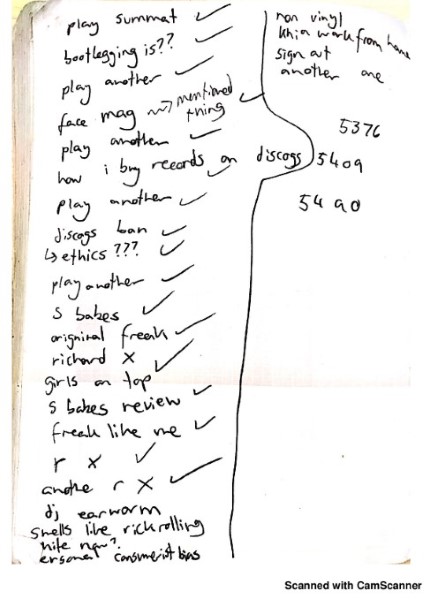 play summat ✓
bootlegging is?? ✓
play another ✓
face mag ~> mentioned thing ✓
play another ✓
how i buy records on discogs ✓
play another ✓
discogs ban ✓
↳ ethics ??? ✓
play another ✓
s babes ✓
original freak ✓
richard x ✓
girls on top
s babes review ✓
freak like me ✓
r x ✓
another r x ✓
dj earworm
smells like rickrolling
nite now?
consumerist bias
non vinyl
khia work from home
sign out
another one
5376
5409
5490
Scanned with CamScanner